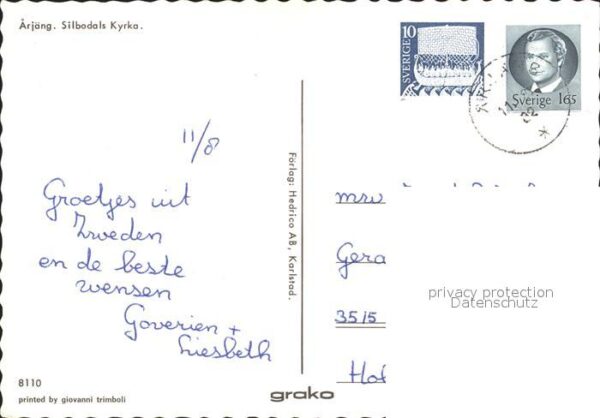 Årjäng. Silbodals Kyrka.
SVERIGE 10
Sverige 165
11/8
Groetjes uit
Zweden
en de beste
wensen
Goverien +
Liesbeth
Förlag: Hedrico AB, Karlstad.
mrv
Gera
3515
Hol
privacy protection
Datenschutz
8110
printed by giovanni trimboli
grako